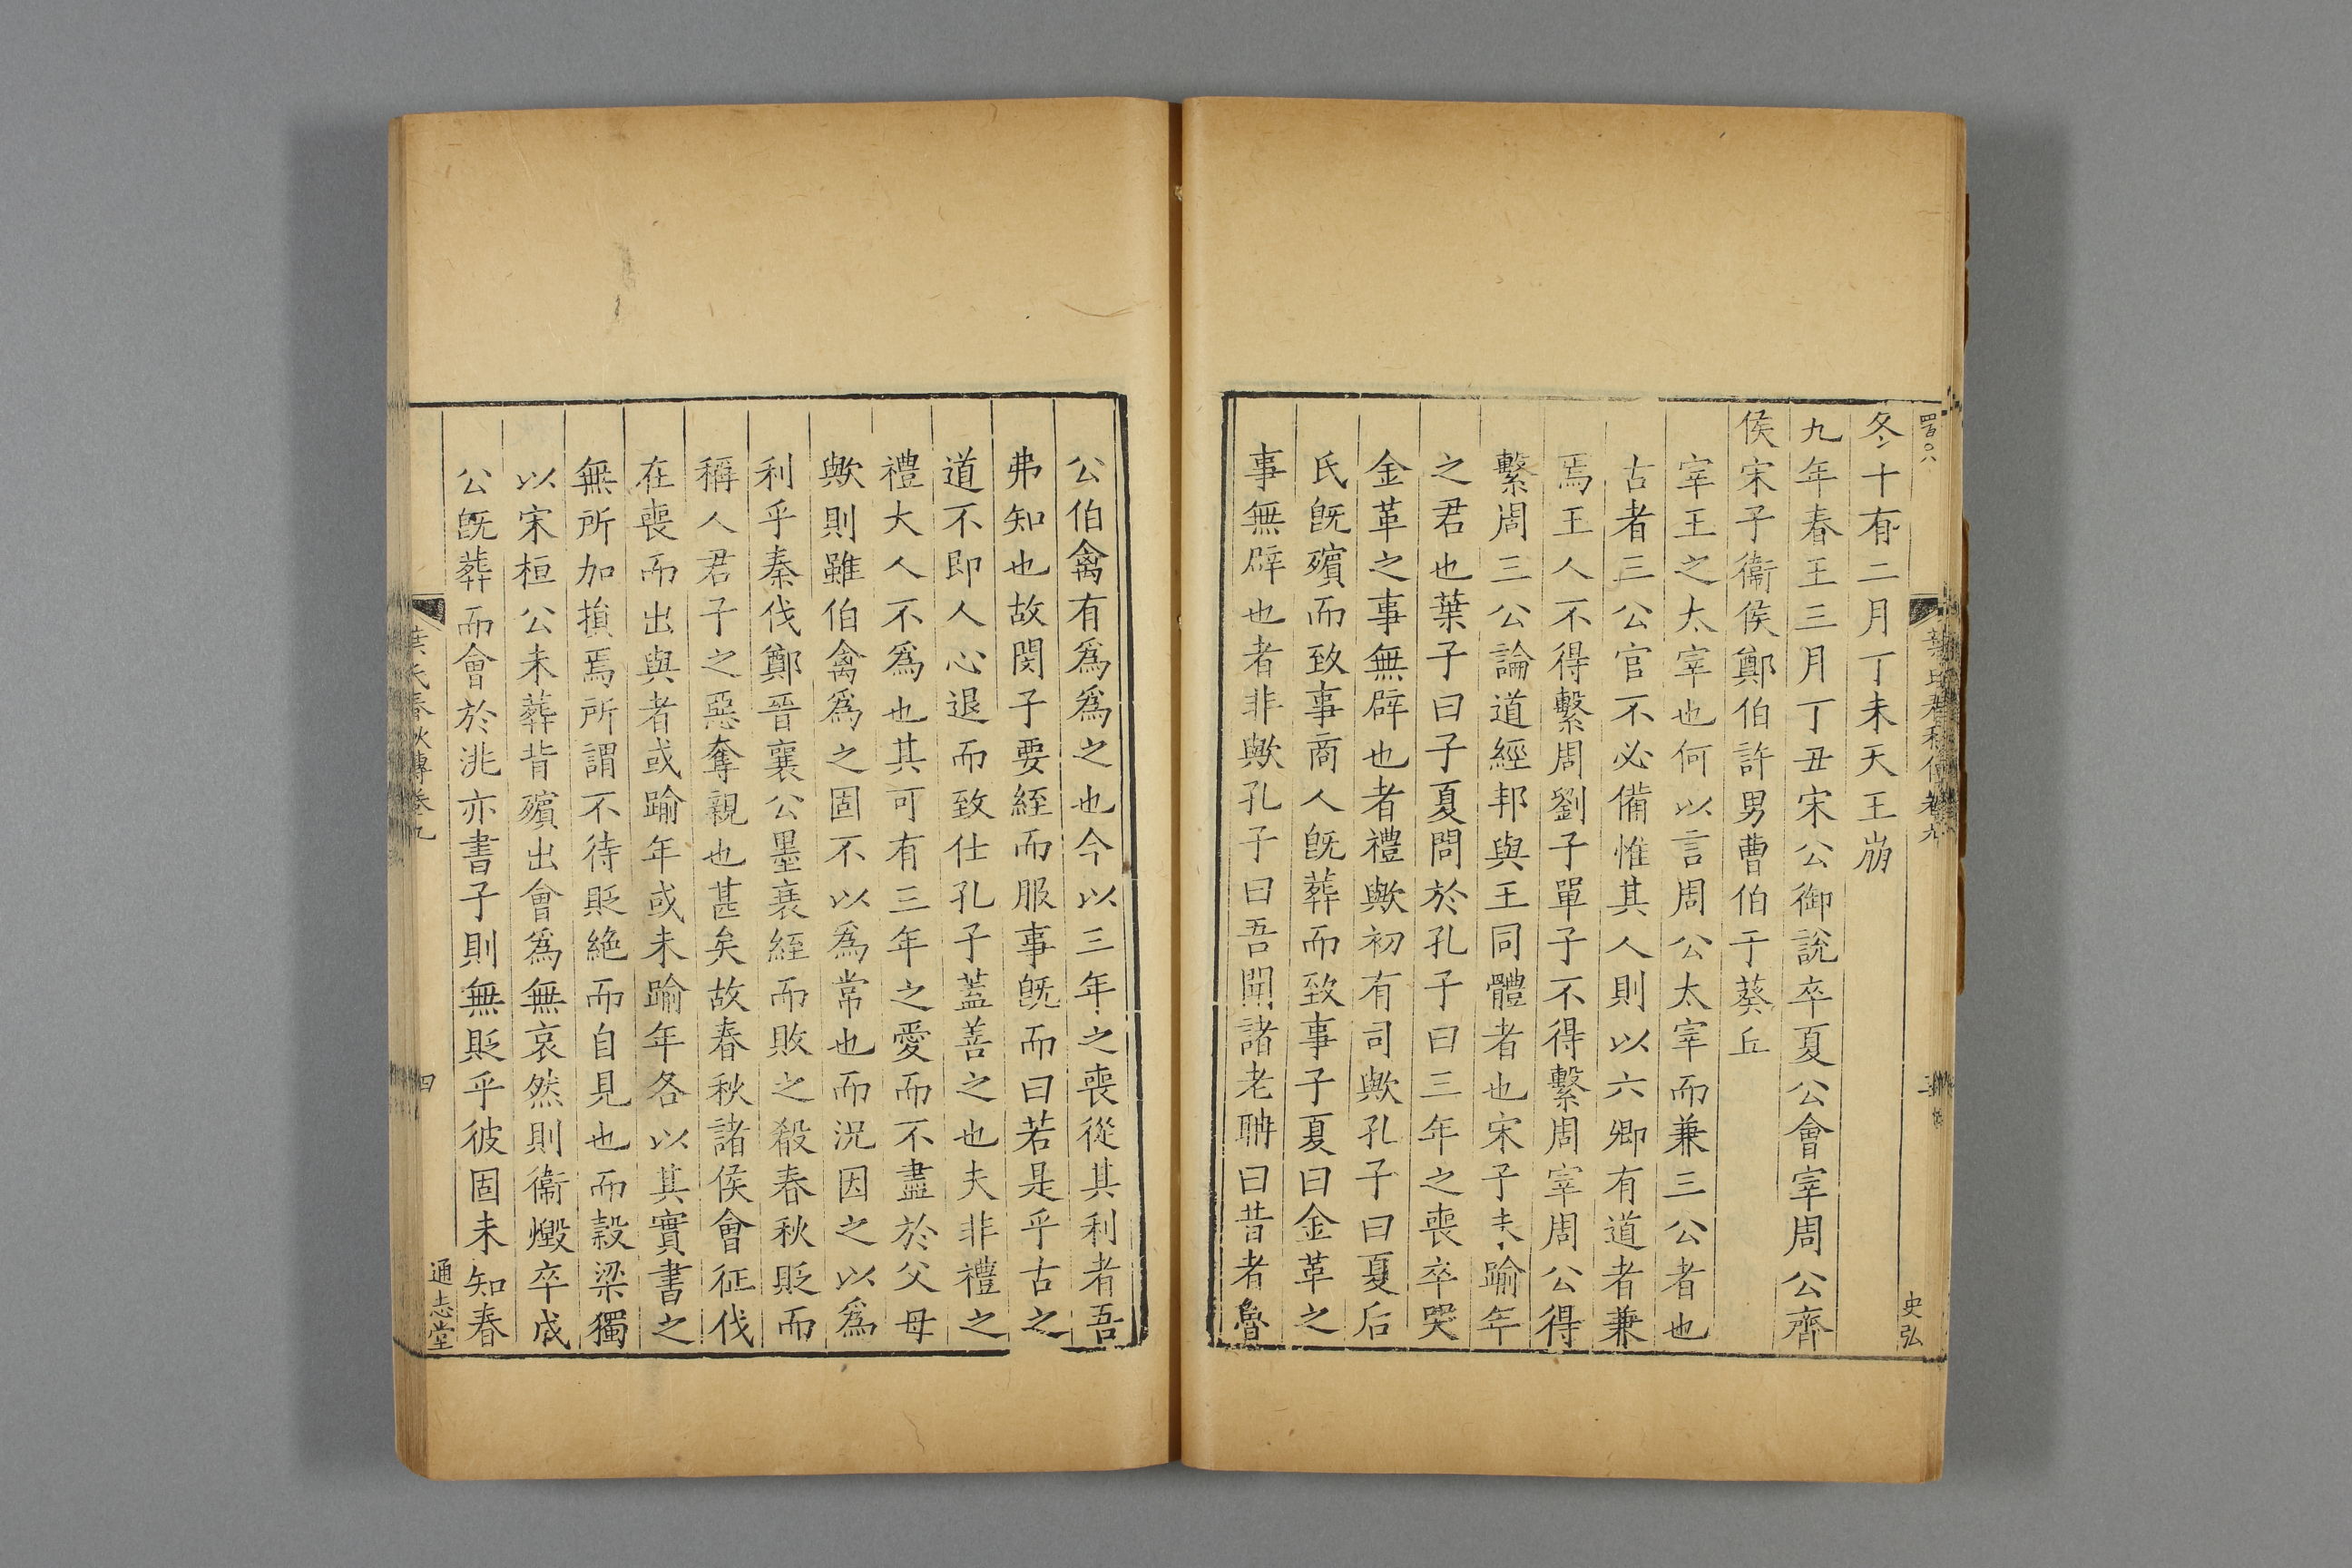 冬十有二月丁未天王崩
九年春王三月丁丑宋公御說卒夏公會宰周公齊
侯宋子衞侯鄭伯許男曹伯于葵丘
宰王之太宰也何以言周公太宰而兼三公者也
古者三公官不必備惟其人則以六卿有道者兼
焉王人不得繫周劉子單子不得繫周宰周公得
繫周三公論道經邦與王同體者也宋子未踰年
之君也葉子曰子夏問於孔子曰三年之喪卒哭
金革之事無辟也者禮歟初有司歟孔子曰夏后
氏旣殯而致事商人旣葬而致事子夏曰金革之
事無辟也者非歟孔子曰吾聞諸老聃曰昔者魯
史弘
公伯禽有爲爲之也今以三年之喪從其利者吾
弗知也故閔子要絰而服事旣而曰若是乎古之
道不即人心退而致仕孔子蓋善之也夫非禮之
禮大人不爲也其可有三年之愛而不盡於父母
歟則雖伯禽爲之固不以爲常也而況因之以爲
利乎秦伐鄭晉襄公墨衰絰而敗之殽春秋貶而
稱人君子之惡奪親也甚矣故春秋諸侯會征伐
在喪而出與者或踰年或未踰年各以其實書之
無所加損焉所謂不待貶絶而自見也而穀梁獨
以宋桓公未葬背殯出會爲無哀然則衞燬卒成
公旣葬而會於洮亦書子則無貶乎彼固未知春
葉氏春秋傳卷九
四
通志堂